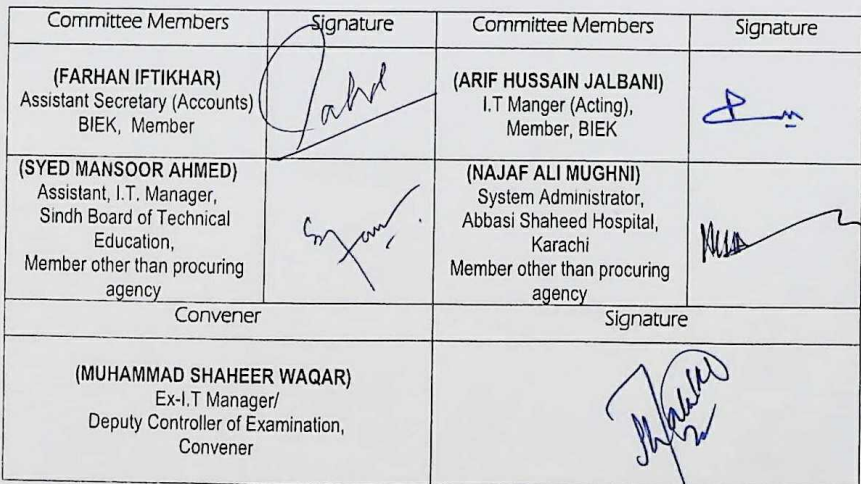 Committee Members Signature Committee Members Signature
(FARHAN IFTIKHAR)
Assistant Secretary (Accounts)
BIEK, Member
(ARIF HUSSAIN JALBANI)
I.T Manger (Acting),
Member, BIEK
(SYED MANSOOR AHMED)
Assistant, I.T. Manager,
Sindh Board of Technical
Education,
Member other than procuring
agency
(NAJAF ALI MUGHNI)
System Administrator,
Abbasi Shaheed Hospital,
Karachi
Member other than procuring
agency
Convener Signature
(MUHAMMAD SHAHEER WAQAR)
Ex-I.T Manager/
Deputy Controller of Examination,
Convener